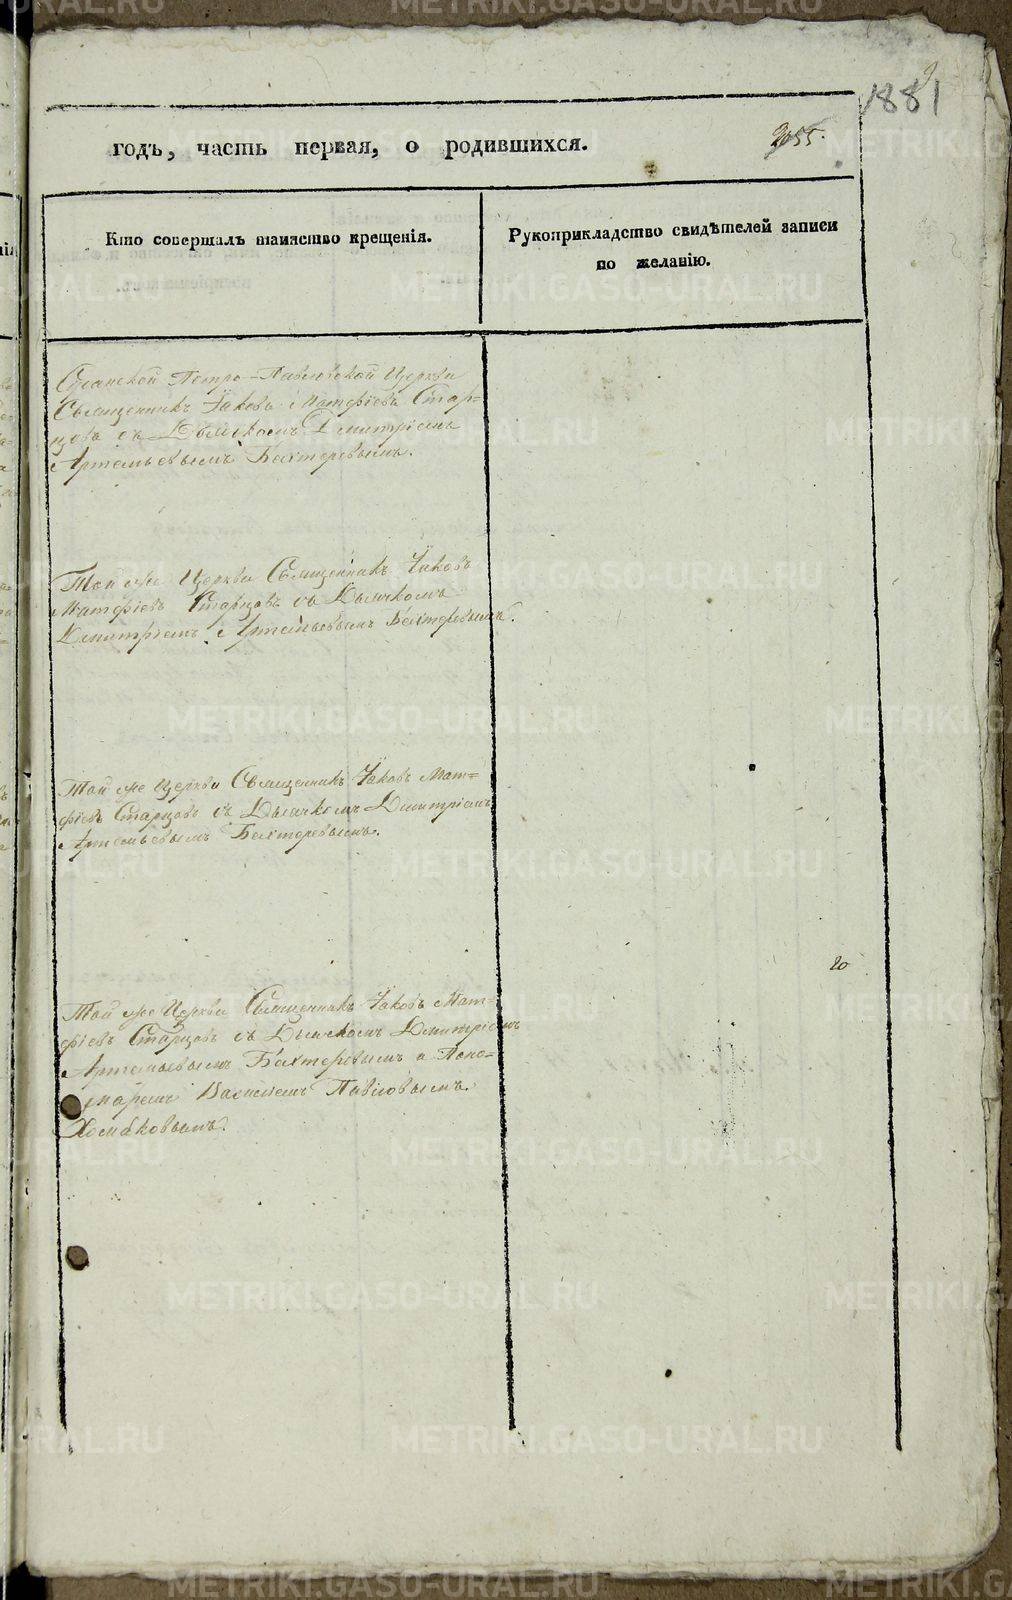 1881
годъ, часть первая, о родившихся.
2055.
Кто совершалъ таинство крещенія.
Рукоприкладство свидѣтелей записи
по желанію.
Петро-Павловской Церкви
Священникъ Іаковъ Матфіевъ Стар-
цовъ съ Дьячкомъ Димитріемъ
Артемьевымъ Бехтеревымъ.
Той же Церкви Священникъ Іаковъ
Матфіевъ Старцовъ съ Дьячкомъ
Димитріемъ Артемьевымъ Бехтеревымъ.
Той же Церкви Священникъ Іаковъ Мат-
фіевъ Старцовъ съ Дьячкомъ Димитріемъ
Артемьевымъ Бехтеревымъ.
20
Той же Церкви Священникъ Іаковъ Мат-
фіевъ Старцовъ съ Дьячкомъ Димитріемъ
Артемьевымъ Бехтеревымъ и Поно-
маремъ Василіемъ Павловымъ
Хомяковымъ.
METRIKI.GASO-URAL.RU